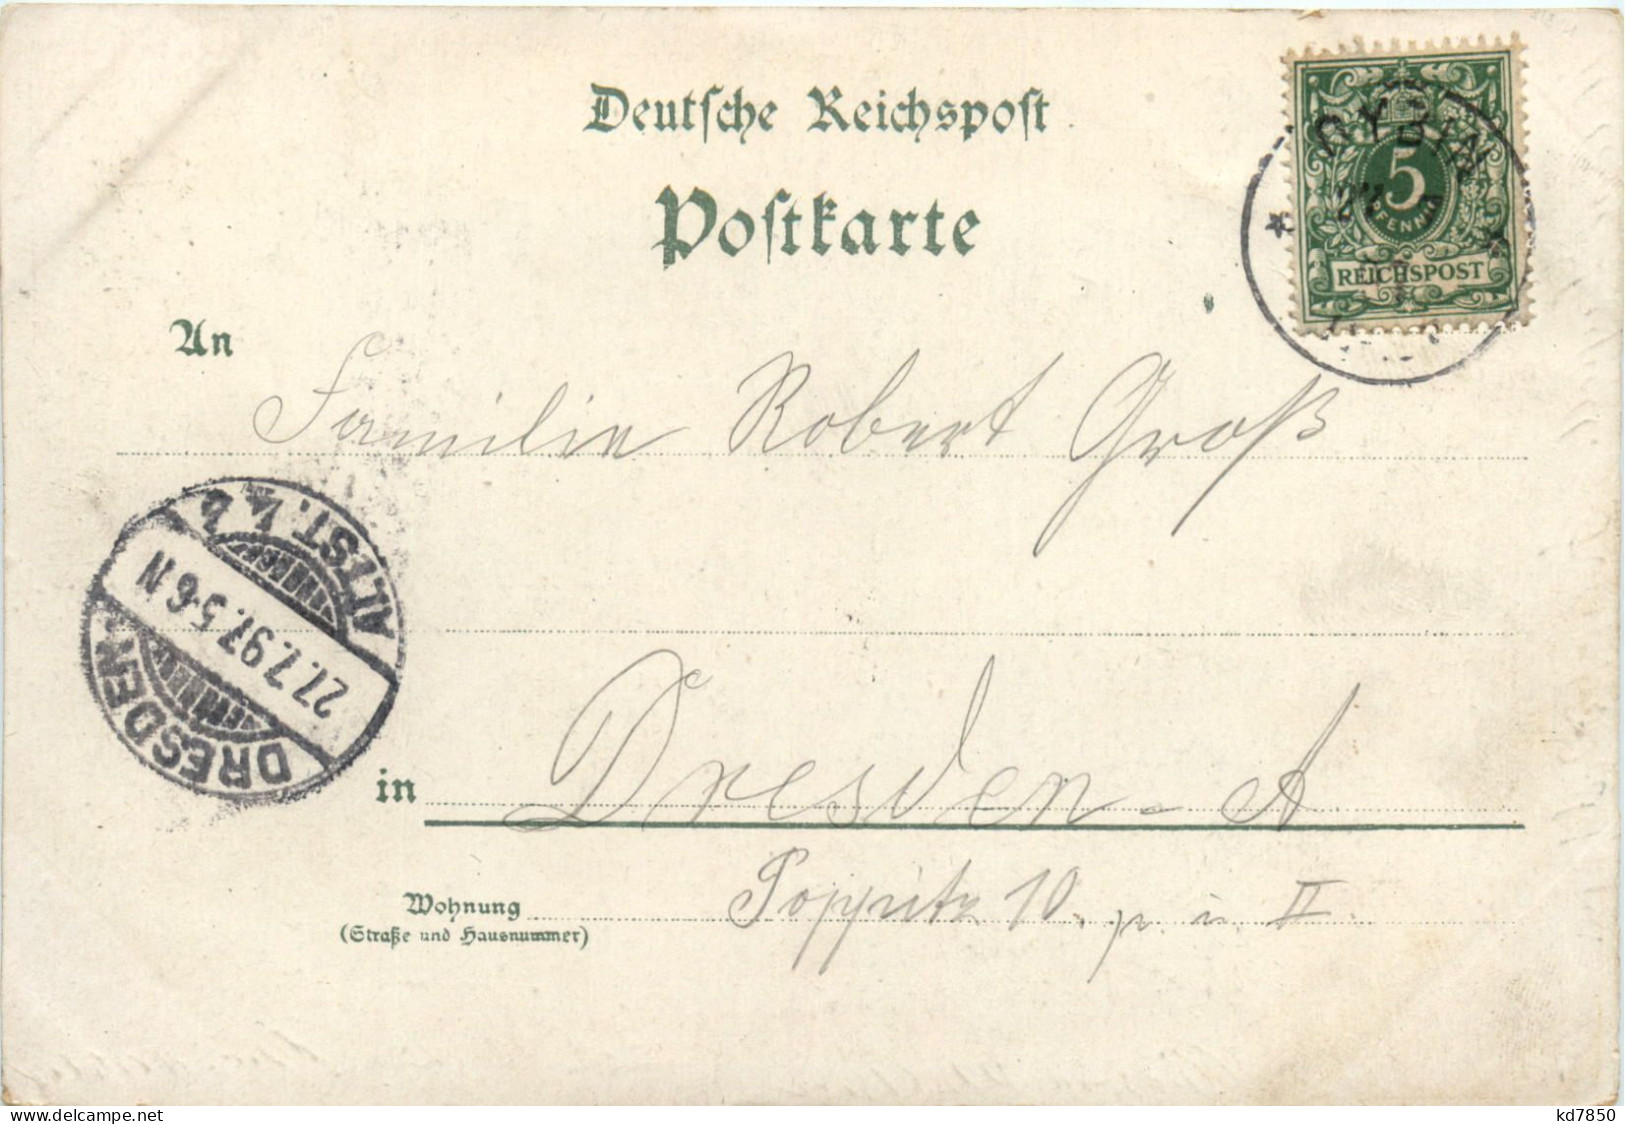 Deutsche Reichspost
Postkarte
OYBIN
27 7
5
PFENNIG
REICHSPOST
An Familie Robert Groß
DRESDEN ALTST. 4 b
27.7.97. 5-6 N
in Dresden - A
Wohnung Poppritz 10. p. u. II.
(Straße und Hausnummer)
www.delcampe.net
kd7850